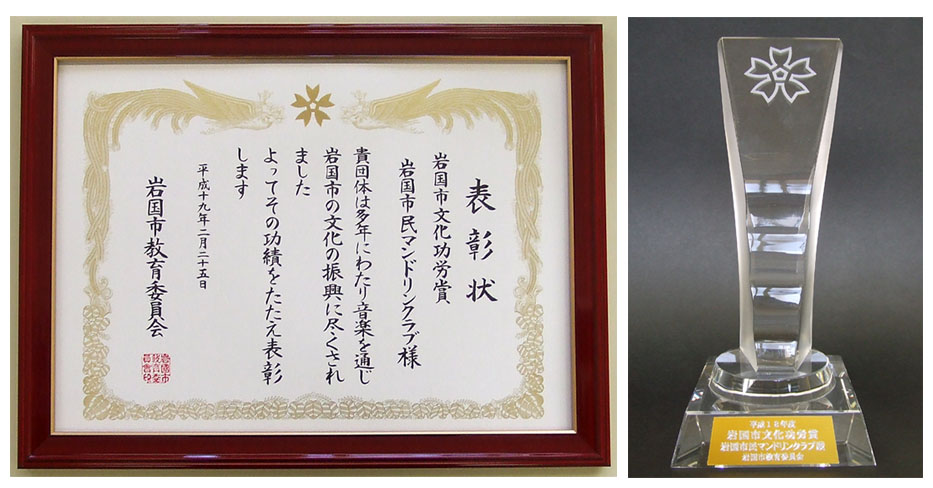 表彰状
岩国市文化功労賞
岩国市民マンドリンクラブ様
貴団体は多年にわたり音楽を通じ
岩国市の文化の振興に尽くされ
ました
よってその功績をたたえ表彰
します
平成十九年二月二十五日
岩国市教育委員会
岩国市
教育委
員会印
平成18年度
岩国市文化功労賞
岩国市民マンドリンクラブ殿
岩国市教育委員会